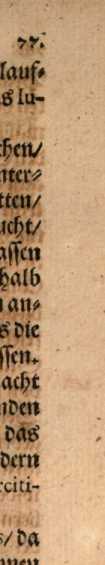 77.
lauf⸗
s lu-
chen/
nter⸗
tten/
ucht/
assen
halb
n an⸗
s die
ssen.
acht
nden
das
dern
rciti-
s/ da